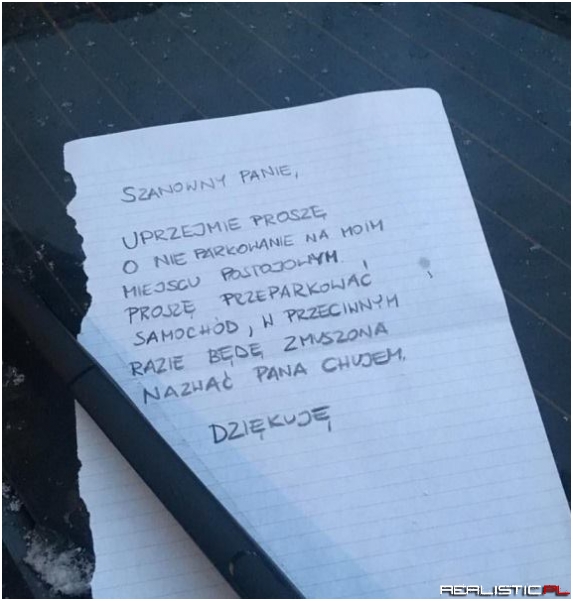 SZANOWNY PANIE,
UPRZEJMIE PROSZĘ
O NIE PARKOWANIE NA MOIM
MIEJSCU POSTOJOWYM !
PROSZĘ PRZEPARKOWAĆ
SAMOCHÓD, W PRZECIWNYM
RAZIE BĘDĘ ZMUSZONA
NAZWAĆ PANA CHUJEM.
DZIĘKUJĘ
REALISTIC.PL